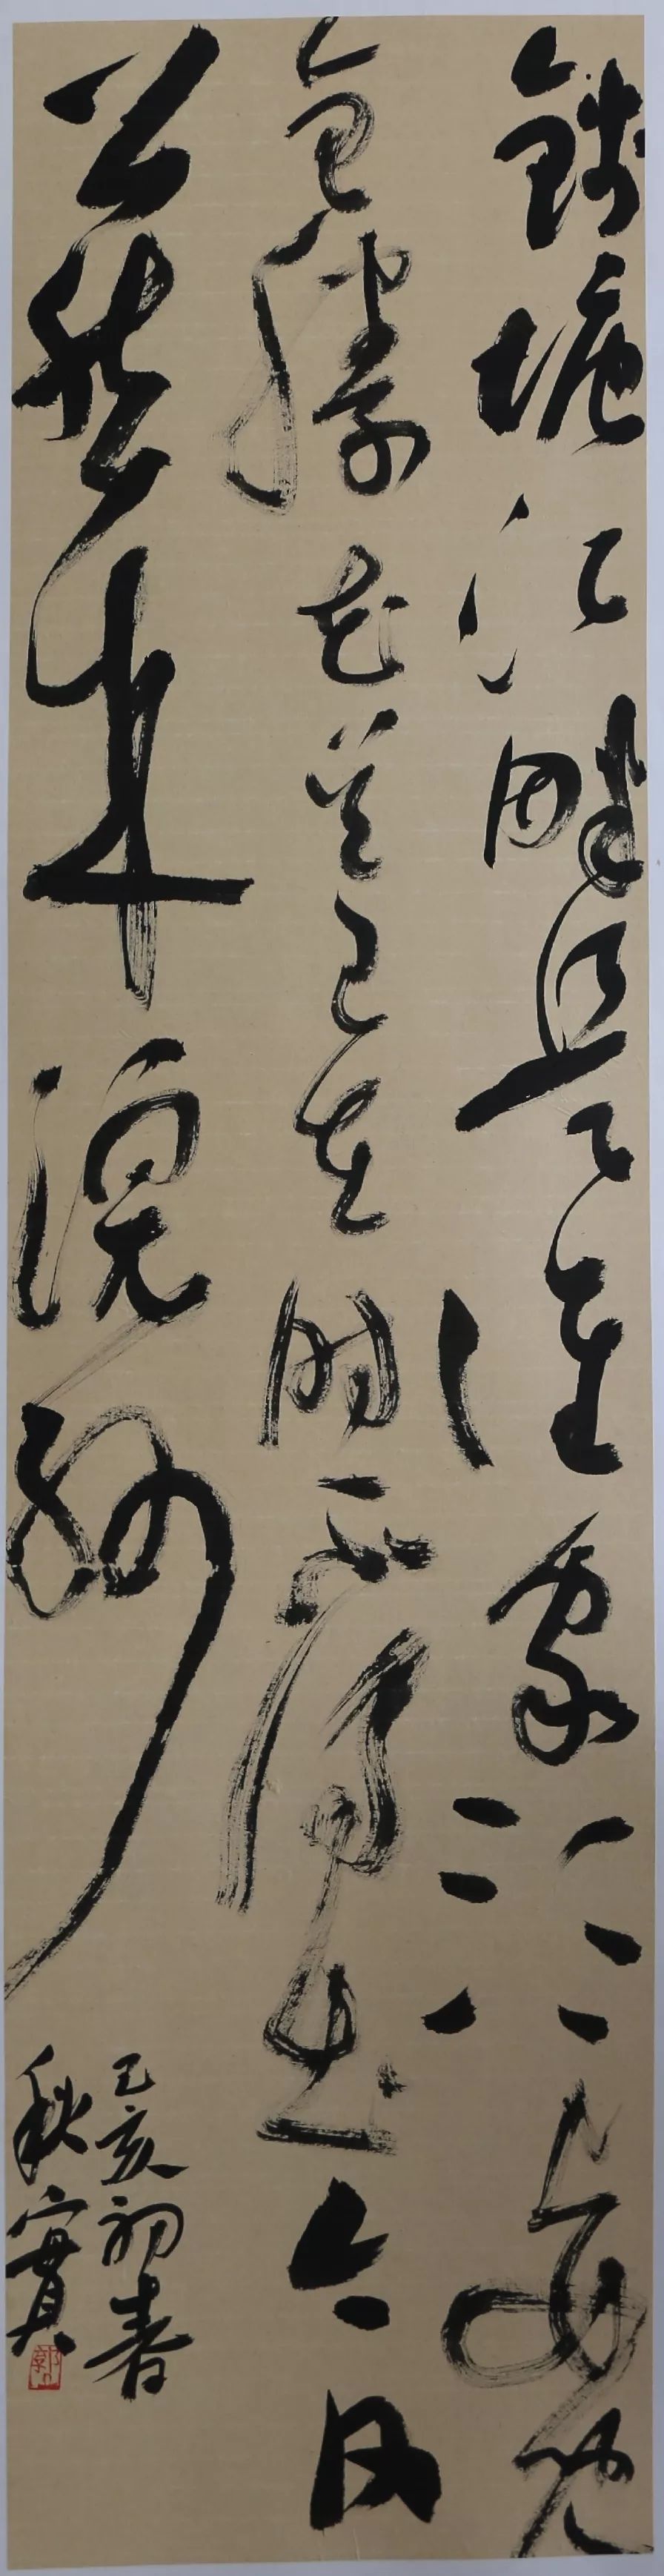 錢塘江畔是誰家江上女兒
全勝花吴王在時不得出今日
公然來浣紗
己亥初春
秋實